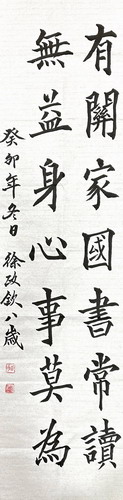 有關家國書常讀
無益身心事莫為
癸卯年冬日 徐政欽八歲